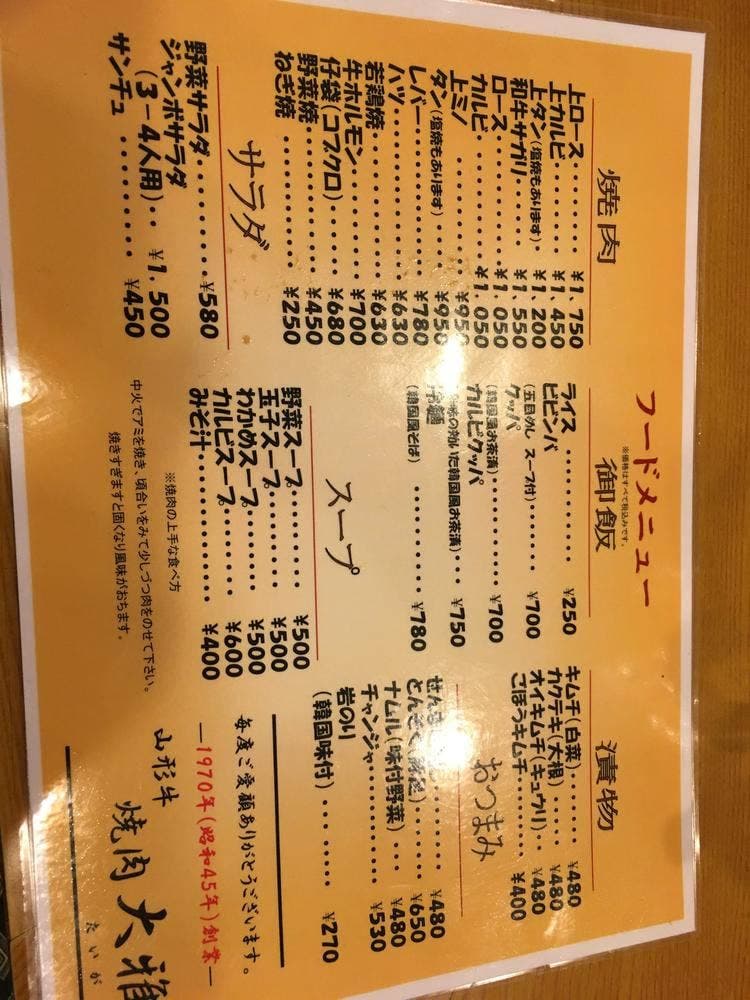 フードメニュー
※価格はすべて税込みです。
焼肉
上ロース・・・・・・・¥1,750
上カルビ・・・・・・・¥1,450
上タン(塩焼もあります)・¥1,200
和牛サガリ・・・・・・¥1,550
ロース・・・・・・・・¥1,050
カルビ・・・・・・・・¥1,050
上ミノ・・・・・・・・¥950
タン(塩焼もあります)・・¥950
レバー・・・・・・・・¥780
ハツ・・・・・・・・・¥630
若鶏焼・・・・・・・・¥630
牛ホルモン・・・・・・¥700
仔袋(コブクロ)・・・・¥680
野菜焼・・・・・・・・¥450
ねぎ焼・・・・・・・・¥250
サラダ
野菜サラダ・・・・・・¥580
ジャンボサラダ
(3-4人用)・・¥1,500
サンチュ・・・・・・・¥450
御飯
ライス・・・・・・・・¥250
ビビンバ
(五目めし スープ付)・・・・・¥700
クッパ
(韓国風お茶漬)・・・・・・・¥700
カルビクッパ
の効いた韓国風お茶漬)・・¥750
冷麺
(韓国風そば)・・・・・・・¥780
スープ
野菜スープ・・・・・・¥500
玉子スープ・・・・・・¥500
わかめスープ・・・・・¥500
カルビスープ・・・・・¥600
みそ汁・・・・・・・・¥400
※焼肉の上手な食べ方
中火でアミを焼き、頃合いをみて少しづつ肉をのせて下さい。
焼きすぎますと固くなり風味がおちます。
漬物
キムチ(白菜)・・・・・¥480
カクテキ(大根)・・・・¥480
オイキムチ(キュウリ)・・¥480
ごぼうキムチ・・・・・¥400
おつまみ
せんま ¥480
とんそく ¥650
ナムル(味付野菜)・・・¥480
チャンジャ・・・・・・¥530
岩のり
(韓国味付)・・・・・・¥270
毎度ご愛顧ありがとうございます。
―1970年(昭和45年)創業―
山形牛 焼肉 大雅
たいが